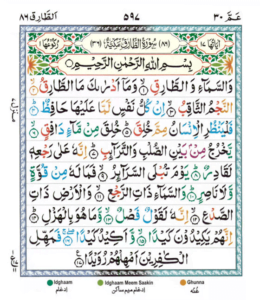 عَمَّ ٣٠ ٥٩٧ اَلطَّارِق ٨٦
اٰيَاتُهَا ١٧ (٨٦) سُوْرَةُ الطَّارِقِ مَكِّيَّةٌ (٣٦) رُكُوْعُهَا ١
بِسْمِ اللّٰهِ الرَّحْمٰنِ الرَّحِيْمِ
وَالسَّمَآءِ وَ الطَّارِقِ ۙ﴿١﴾ وَمَاۤ اَدْرٰىكَ مَا الطَّارِقُ ۙ﴿٢﴾
النَّجْمُ الثَّاقِبُ ۙ﴿٣﴾ اِنْ كُلُّ نَفْسٍ لَّمَّا عَلَيْهَا حَافِظٌ ؕ﴿٤﴾
فَلْيَنْظُرِ الْاِنْسَانُ مِمَّ خُلِقَ ؕ﴿٥﴾ خُلِقَ مِنْ مَّآءٍ دَافِقٍ ۙ﴿٦﴾
يَّخْرُجُ مِنْۢ بَيْنِ الصُّلْبِ وَالتَّرَآئِبِ ؕ﴿٧﴾ اِنَّهٗ عَلٰى رَجْعِهٖ
لَقَادِرٌ ؕ﴿٨﴾ يَوْمَ تُبْلَى السَّرَآئِرُ ۙ﴿٩﴾ فَمَا لَهٗ مِنْ قُوَّةٍ
وَّلَا نَاصِرٍ ؕ﴿١٠﴾ وَالسَّمَآءِ ذَاتِ الرَّجْعِ ۙ﴿١١﴾ وَ الْاَرْضِ ذَاتِ
الصَّدْعِ ۙ﴿١٢﴾ اِنَّهٗ لَقَوْلٌ فَصْلٌ ۙ﴿١٣﴾ وَّمَا هُوَ بِالْهَزْلِ ؕ﴿١٤﴾
اِنَّهُمْ يَكِيْدُوْنَ كَيْدًا ۙ﴿١٥﴾ وَّ اَكِيْدُ كَيْدًا ۚۖ﴿١٦﴾ فَمَهِّلِ
الْكٰفِرِيْنَ اَمْهِلْهُمْ رُوَيْدًا ﴿١٧﴾
Idghaam Idghaam Meem Saakin Ghunna
ادغام ادغام میم ساکن غنّہ